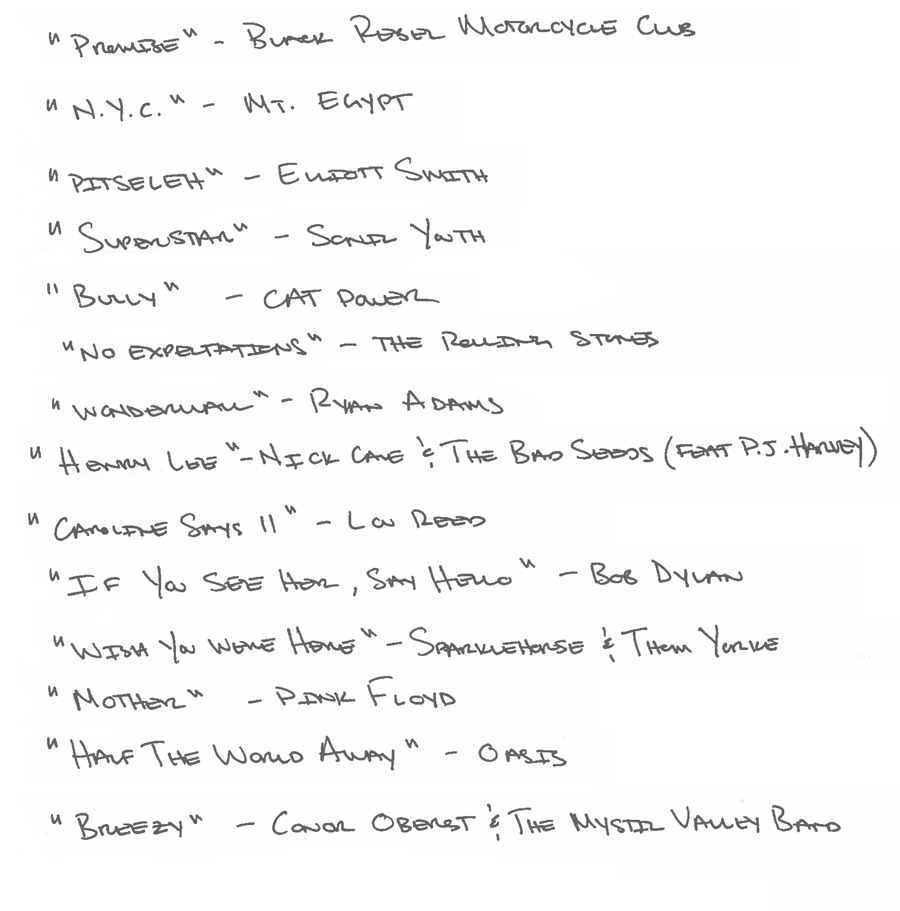 "Promise" - Black Rebel Motorcycle Club
"N.Y.C." - Mt. Egypt
"Pitseleh" - Elliott Smith
"Superstar" - Sonic Youth
"Bully" - Cat Power
"No Expectations" - The Rolling Stones
"Wonderwall" - Ryan Adams
"Henry Lee" - Nick Cave & The Bad Seeds (Feat P.J. Harvey)
"Caroline Says II" - Lou Reed
"If You See Her, Say Hello" - Bob Dylan
"Wish You Were Here" - Sparklehorse & Thom Yorke
"Mother" - Pink Floyd
"Half The World Away" - Oasis
"Breezy" - Conor Oberst & The Mystic Valley Band